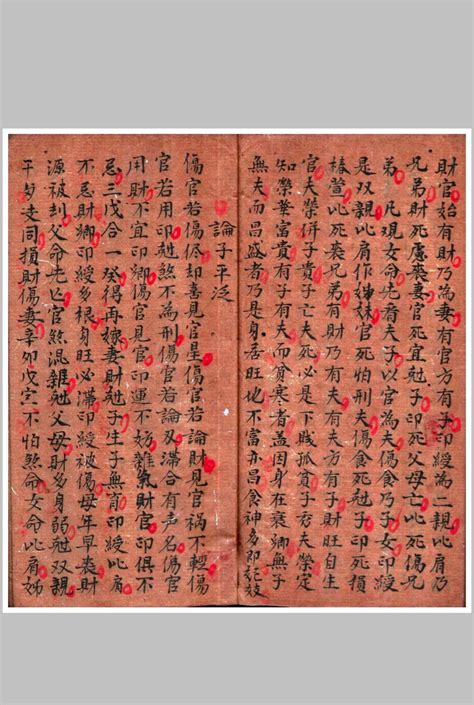 財官始有財乃為妻有官方有子印綬為二親比肩乃
兄弟財死處喪妻官死宜尅子印死父母亡比死傷兄
弟凡現女命先看夫子以官為夫傷食乃子女印綬
是双親比肩作姊妹官死怕刑夫傷食死尅子印死損
椿萱比死喪兄弟有財乃有夫有夫方有子財旺自生
官夫榮併子貴子亡夫死必是下賤孤貧子秀夫榮定
知榮華富貴有子有夫而貧寒者盖因身在衰鄉無子
無夫而昌盛者乃是身居旺地不富亦昌食神多即花妓
論子平泛
傷官若傷侭却喜見官星傷官若論財見官禍不輕傷
官若用印尅煞不為刑傷官若論刃滞合有声名傷官
用財不宜印鄉傷官見官印運不妨雜氣財官印俱不
忌三戊合一癸得再嫁妻財尅子生子無育印綬比肩
不忌財鄉印綬多根身旺必滞印綬被傷母年早喪財
源被刦父命先亡官煞混雜尅父母財多身弱尅双親
干与支同損財傷妻辛卯戊寅不怕煞命女命比肩姊